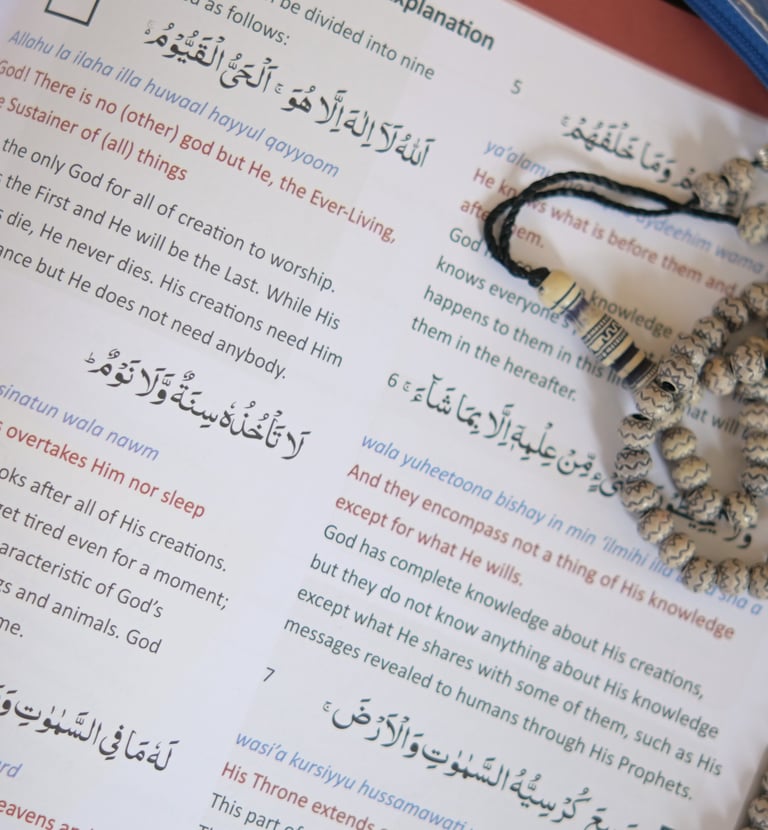 Explanation
as follows:
be divided into nine
اَللّٰهُ لَاۤ اِلٰهَ اِلَّا هُوَ ۚ اَلْحَيُّ الْقَيُّوْمُ ۚ
Allahu la ilaha illa huwaal hayyul qayyoom
God! There is no (other) god but He, the Ever-Living,
Sustainer of (all) things
the only God for all of creation to worship.
the First and He will be the Last. While His
die, He never dies. His creations need Him
but He does not need anybody.
لَا تَاْخُذُهٗ سِنَةٌ وَّلَا نَوْمٌ ؕ
sinatun wala nawm
overtakes Him nor sleep
after all of His creations.
get tired even for a moment;
characteristic of God's
and animals. God
لَهٗ مَا فِي السَّمٰوٰتِ
5
وَمَا خَلْفَهُمْ ۚ
ya'alam aydeehim wama
He knows what is before them and
after them.
God knowledge
knows everyone's
happens to them in this will
them in the hereafter.
6
مِّنْ عِلْمِهٖۤ اِلَّا بِمَا شَآءَ ۚ
wala yuheetoona bishay in min 'ilmihi illa sha a
And they encompass not a thing of His knowledge
except for what He wills.
God has complete knowledge about His creations,
but they do not know anything about His knowledge
except what He shares with some of them, such as His
messages revealed to humans through His Prophets.
7
كُرْسِيُّهُ السَّمٰوٰتِ وَالْاَرْضَ ۚ
wasi'a kursiyyu hussamawati
His Throne extends
This part